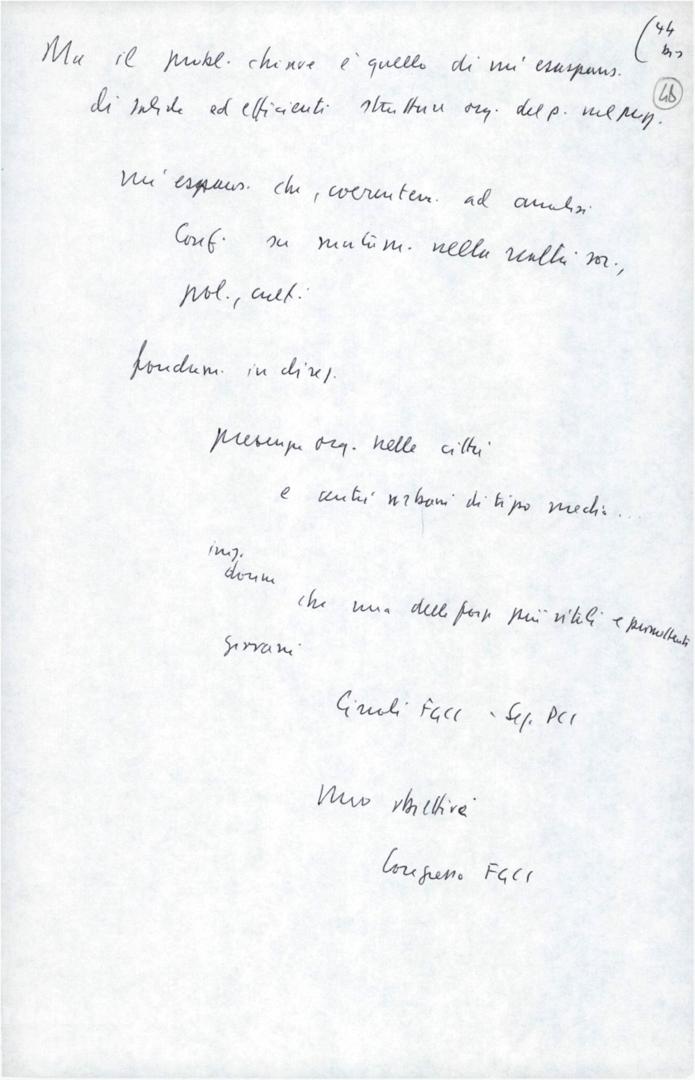 (44 bis
Ma il probl. chiave è quello di un'espans.
48
di solide ed efficienti strutture org. del p. nel
un'espans. che, coerentem. ad analisi
Conf. su nella realtà soc.,
pol., cult.
fondam. in direz.
presenza org. nelle città
e centri urbani di tipo medio ...
donne
che una delle forze più vitali e promettenti
giovani
Circoli FGCI - Sez. PCI
Congresso FGCI